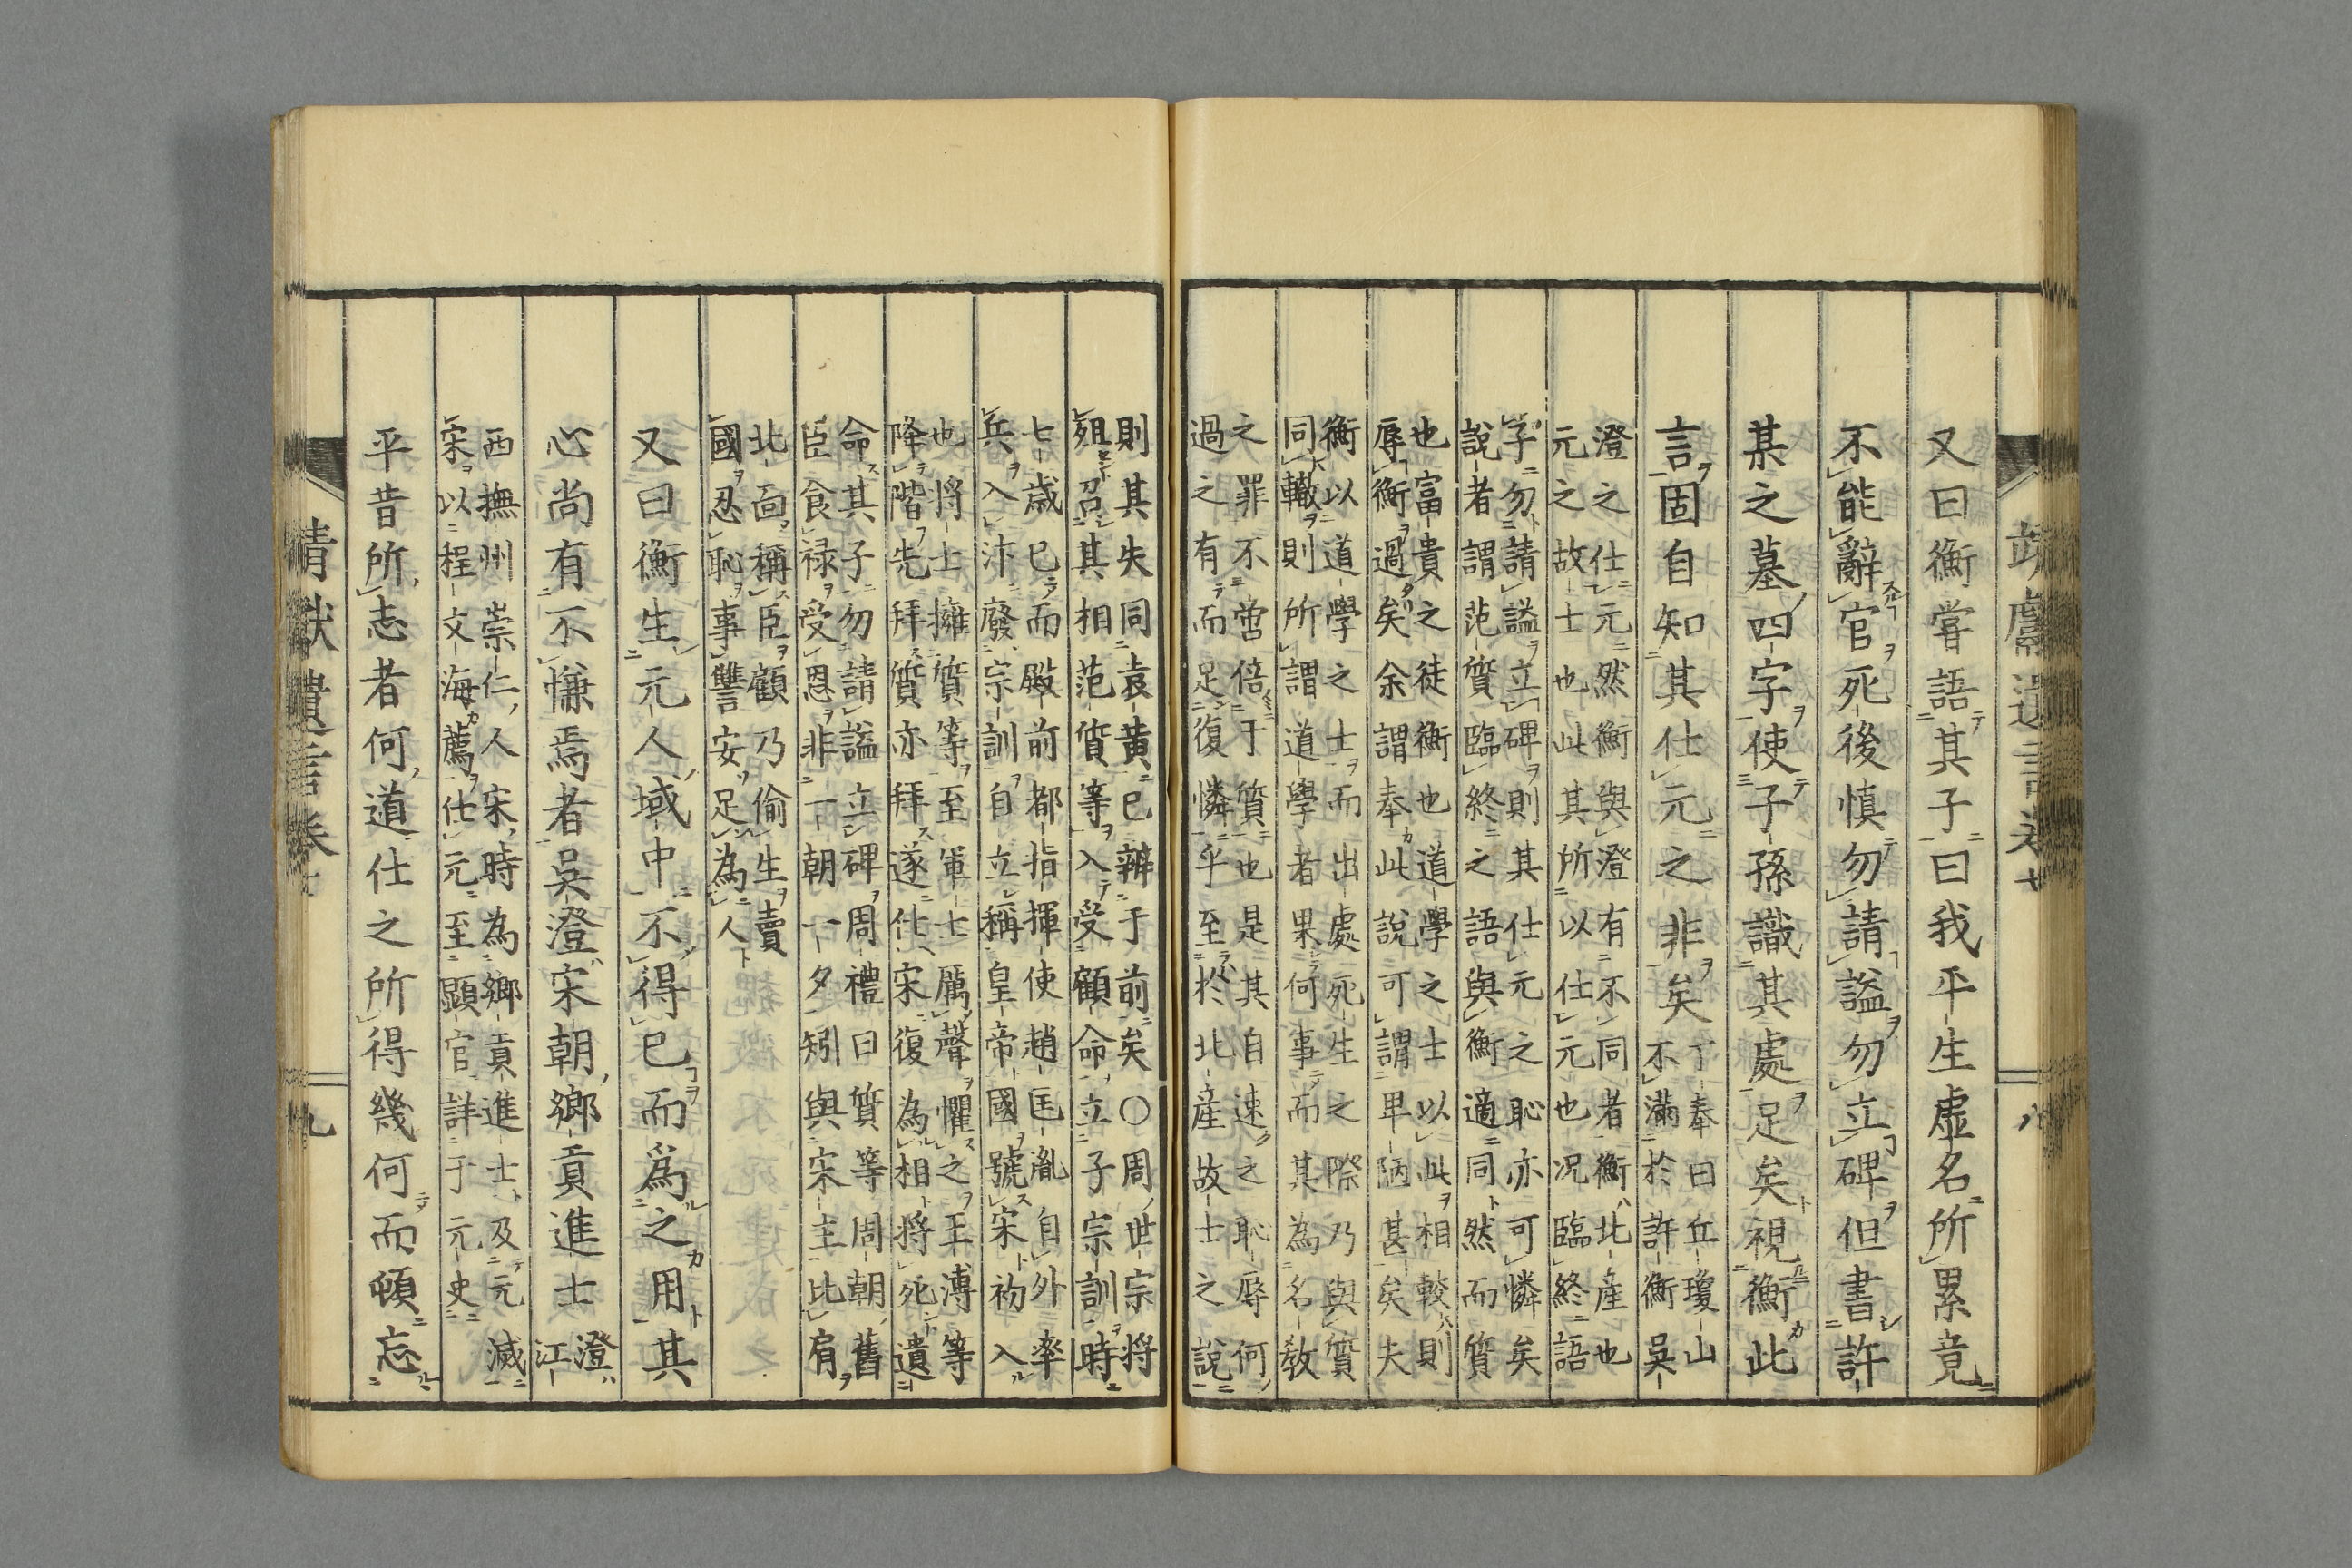 靖獻遺言卷七
八
又曰衡嘗語其子曰我平生虛名所累竟
不能辭官死後慎勿請謚勿立碑但書許
某之墓四字使子孫識其處足矣視衡此
言固自知其仕元之非矣丁奉曰丘瓊山
不滿於許衡吳
澄之仕元然衡與澄有不同者衡北産也
元之故士也此其所以仕元也况臨終語
字勿請謚立碑則其仕元之恥亦可憐矣
說者謂范質臨終之語與衡適同然而質
也富貴之徒衡也道學之士以此相較則
辱衡過矣余謂奉此說可謂卑陋甚矣夫
衡以道學之士而出處死生之際乃與質
同轍則所謂道學者果何事而其為名敎
之罪不啻倍于質也是其自速之恥辱何
過之有而足復憐乎至於北産故士之說
則其失同袁黃已辨于前矣〇周世宗將
殂召其相范質等入受顧命立子宗訓時
七歲已而殿前都指揮使趙匡胤自外率
兵入汴廢宗訓自立稱皇帝國號宋初入
也將士擁質等至軍士厲聲懼之王溥等
降階先拜質亦拜遂仕宋復為相將死遺
命其子勿請謚立碑周禮曰質等周朝舊
臣食禄受恩非一朝一夕矧與宋主比肩
北面稱臣顧乃偷生賣
國忍恥事讐安足為人
又曰衡生元人域中不得已而爲之用其
心尚有不慊焉者吳澄宋朝鄉貢進士澄
江
西撫州崇仁人宋時為鄉貢進士及元滅
宋以程文海薦仕元至顯官詳于元史
平昔所志者何道仕之所得幾何而頓忘
靖獻遺言卷七
九